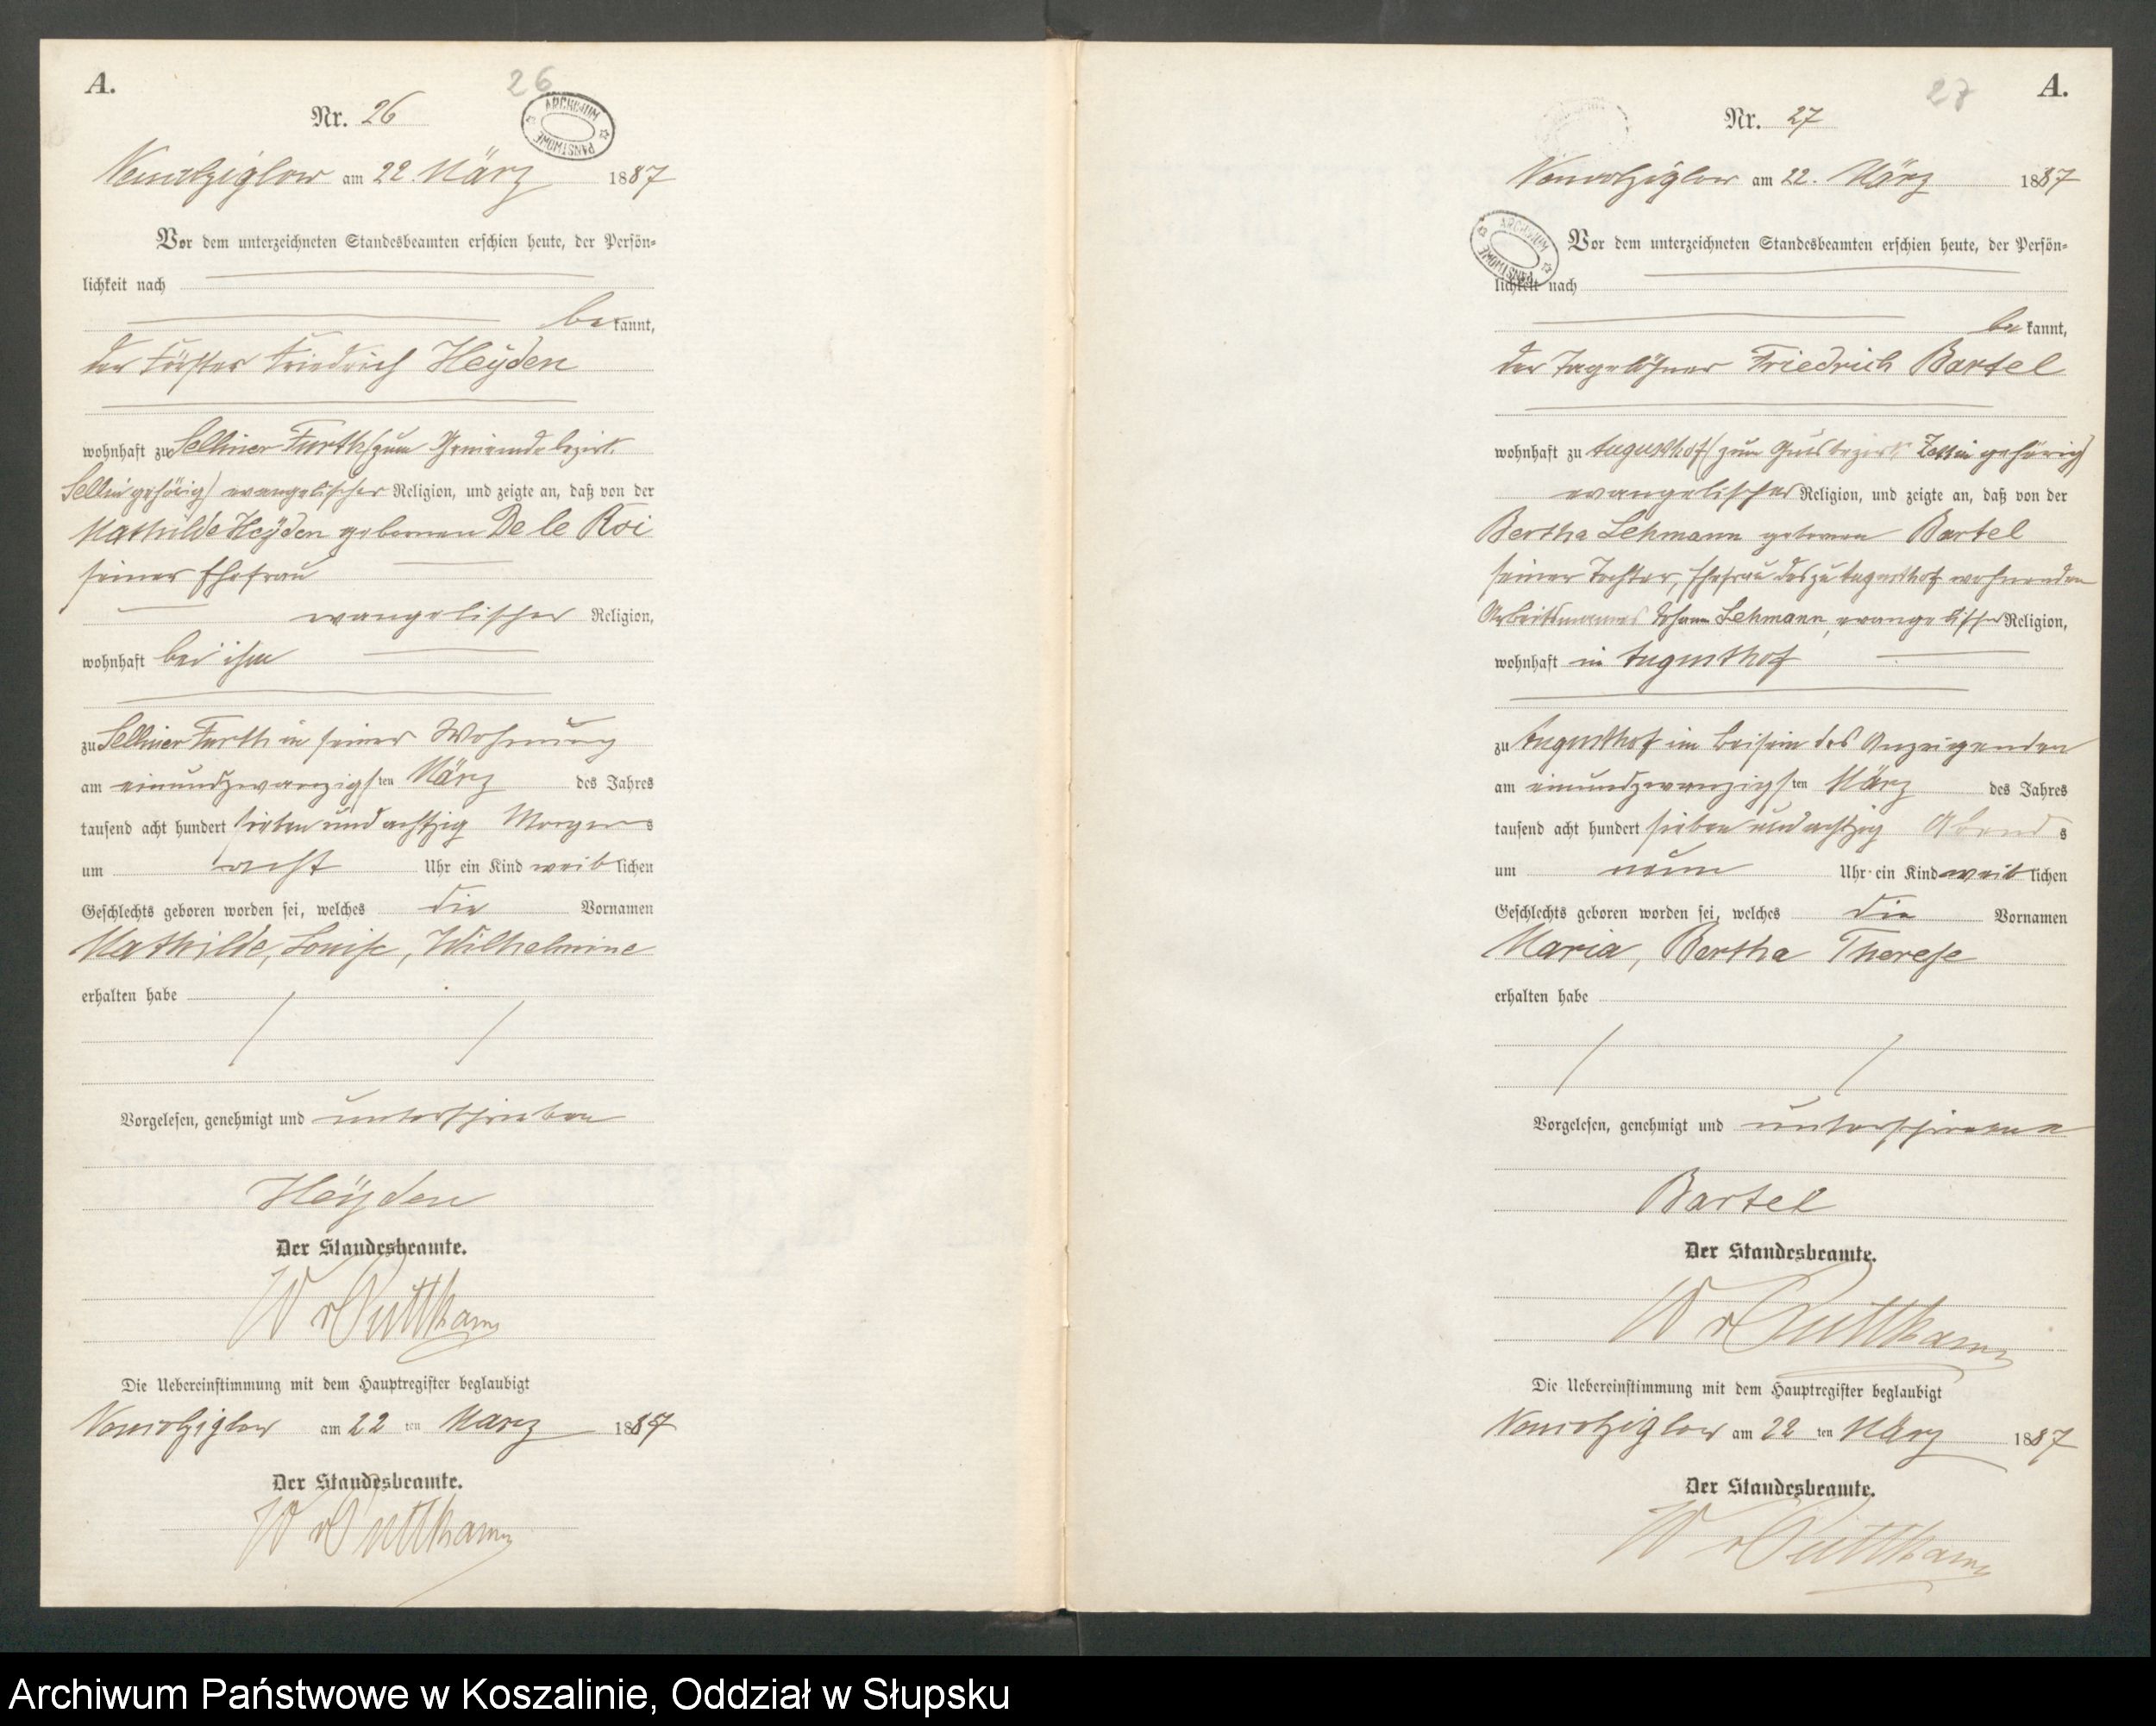 A.
26
Nr. 26
ARCHIWUM PAŃSTWOWE
am 22. März 1887
Vor dem unterzeichneten Standesbeamten erschien heute, der Persön-
lichkeit nach
be kannt,
der Förster Friedrich Heÿden
wohnhaft zu Selliner Furth (zum Gemeindebezirk
Sellin gehörig) evangelischer Religion, und zeigte an, daß von der
Mathilde Heÿden gebornen De le Roi
seiner Ehefrau
evangelischer Religion,
wohnhaft bei ihm
zu Selliner Furth in seiner Wohnung
am einundzwanzigsten März des Jahres
tausend acht hundert sieben und achtzig Morgens
um acht Uhr ein Kind weiblichen
Geschlechts geboren worden sei, welches die Vornamen
Mathilde, Louise, Wilhelmine
erhalten habe
Vorgelesen, genehmigt und unterschrieben
Heÿden
Der Standesbeamte.
W v Puttkamer
Die Uebereinstimmung mit dem Hauptregister beglaubigt
am 22 ten März 1887
Der Standesbeamte.
W v Puttkamer
27
A.
Nr. 27
am 22. März 1887
ARCHIWUM PAŃSTWOWE
Vor dem unterzeichneten Standesbeamten erschien heute, der Persön-
lichkeit nach
be kannt,
der Tagelöhner Friedrich Bartel
wohnhaft zu Augusthof (zum Gutsbezirk Zettin gehörig)
evangelischer Religion, und zeigte an, daß von der
Bertha Lehmann gebornen Bartel
seiner Tochter, Ehefrau des zu Augusthof wohnenden
Arbeitsmannes Johann Lehmann, evangelischer Religion,
wohnhaft in Augusthof
zu Augusthof im Beisein des Anzeigenden
am einundzwanzigsten März des Jahres
tausend acht hundert sieben und achtzig Abends
um neun Uhr ein Kind weiblichen
Geschlechts geboren worden sei, welches die Vornamen
Maria, Bertha Therese
erhalten habe
Vorgelesen, genehmigt und unterschrieben
Bartel
Der Standesbeamte.
W v Puttkamer
Die Uebereinstimmung mit dem Hauptregister beglaubigt
am 22 ten März 1887
Der Standesbeamte.
W v Puttkamer
Archiwum Państwowe w Koszalinie, Oddział w Słupsku